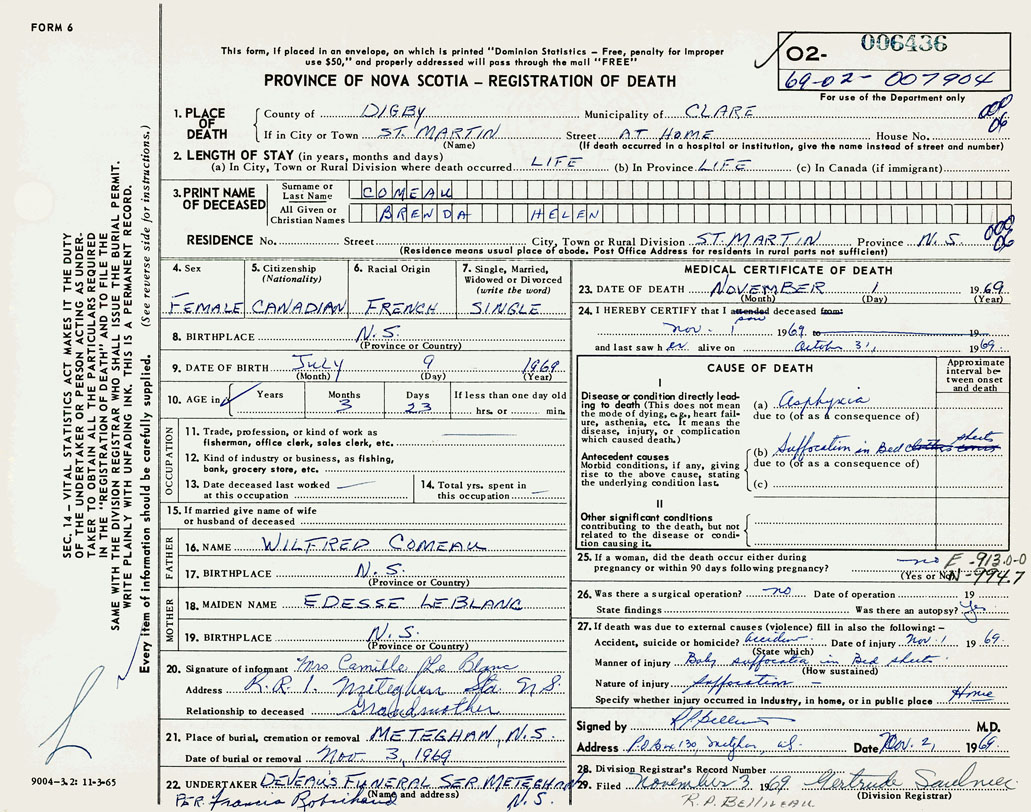 FORM 6
This form, if placed in an envelope, on which is printed "Dominion Statistics – Free, penalty for improper
use $50," and properly addressed will pass through the mail "FREE"
PROVINCE OF NOVA SCOTIA – REGISTRATION OF DEATH
02- 006436
69-02-007904
For use of the Department only
1. PLACE OF DEATH
County of DIGBY Municipality of CLARE
If in City or Town ST. MARTIN Street AT HOME House No.
(Name) (If death occurred in a hospital or institution, give the name instead of street and number)
2. LENGTH OF STAY (in years, months and days)
(a) In City, Town or Rural Division where death occurred LIFE (b) In Province LIFE (c) In Canada (if immigrant)
3. PRINT NAME OF DECEASED
Surname or Last Name COMEAU
All Given or Christian Names BRENDA HELEN
RESIDENCE No. Street City, Town or Rural Division ST. MARTIN Province N.S.
(Residence means usual place of abode. Post Office Address for residents in rural parts not sufficient)
4. Sex FEMALE
5. Citizenship (Nationality) CANADIAN
6. Racial Origin FRENCH
7. Single, Married, Widowed or Divorced (write the word) SINGLE
8. BIRTHPLACE N.S.
(Province or Country)
9. DATE OF BIRTH July 9 1969
(Month) (Day) (Year)
10. AGE in Years Months 3 Days 23 If less than one day old hrs. or min.
OCCUPATION
11. Trade, profession or kind of work as
fisherman, office clerk, sales clerk, etc.
12. Kind of industry or business, as fishing,
bank, grocery store, etc.
13. Date deceased last worked
at this occupation
14. Total yrs. spent in
this occupation
15. If married give name of wife
or husband of deceased
FATHER
16. NAME WILFRED COMEAU
17. BIRTHPLACE N.S.
(Province or Country)
MOTHER
18. MAIDEN NAME EDESSE LEBLANC
19. BIRTHPLACE N.S.
(Province or Country)
20. Signature of informant Mrs Camille Le Blanc
Address R.R. 1. Meteghan Sta. N.S.
Relationship to deceased Grandmother
21. Place of burial, cremation or removal METEGHAN, N.S.
Date of burial or removal Nov. 3, 1969
22. UNDERTAKER DEVEAU'S FUNERAL SER METEGHAN
(Name and address) N.S.
PER. Francis Robichaud
MEDICAL CERTIFICATE OF DEATH
23. DATE OF DEATH NOVEMBER 1 1969
(Month) (Day) (Year)
24. I HEREBY CERTIFY that I attended deceased from:
saw
Nov. 1 1969 to 19
and last saw her alive on October 31, 1969.
CAUSE OF DEATH
Approximate interval between onset and death
I
Disease or condition directly leading
to death (This does not mean
the mode of dying, e.g., heart failure,
asthenia, etc. It means the
disease, injury, or complication
which caused death.)
(a) Asphyxia
due to (or as a consequence of)
Antecedent causes
Morbid conditions, if any, giving
rise to the above cause, stating
the underlying condition last.
(b) Suffocation in Bed sheets
due to (or as a consequence of)
(c)
II
Other significant conditions
contributing to the death, but not
related to the disease or condition
causing it.
25. If a woman, did the death occur either during
pregnancy or within 90 days following pregnancy? no
(Yes or No)
E-913.0-0
N-994.7
26. Was there a surgical operation? no Date of operation 19
State findings Was there an autopsy? Yes
27. If death was due to external causes (violence) fill in also the following:–
Accident, suicide or homicide? Accident Date of injury Nov. 1 1969.
(State which)
Manner of injury Baby suffocated in Bed sheets.
(How sustained)
Nature of injury Suffocation –
Specify whether injury occurred in industry, in home, or in public place Home
Signed by M.D.
Address P.O. Box 130, Meteghan, N.S. Date Nov. 2, 1969.
28. Division Registrar's Record Number
29. Filed November 3 1969 Gertrude Saulnier
(Division Registrar)
R.P. BELLIVEAU
SEC. 14 – VITAL STATISTICS ACT MAKES IT THE DUTY
OF THE UNDERTAKER OR PERSON ACTING AS UNDERTAKER
TO OBTAIN ALL THE PARTICULARS REQUIRED
IN THE "REGISTRATION OF DEATH" AND TO FILE THE
SAME WITH THE DIVISION REGISTRAR WHO SHALL ISSUE THE BURIAL PERMIT.
WRITE PLAINLY WITH UNFADING INK. THIS IS A PERMANENT RECORD.
Every item of information should be carefully supplied. (See reverse side for instructions.)
9004-3.2: 11-3-65